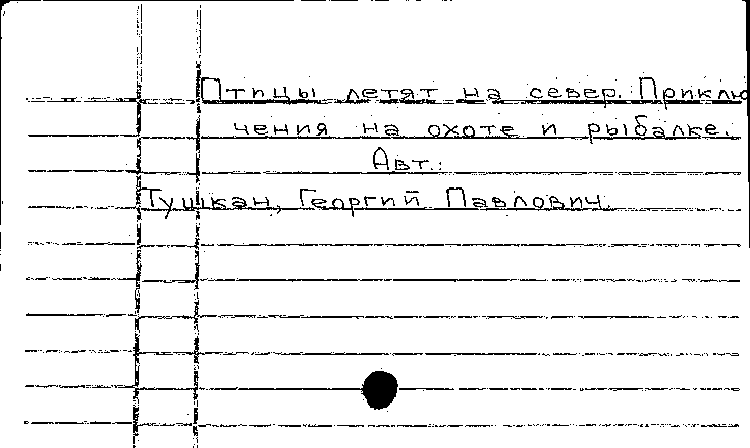 Птицы летят на север. Приклю
чения на охоте и рыбалке.
Авт.:
Тушкан, Георгий Павлович.